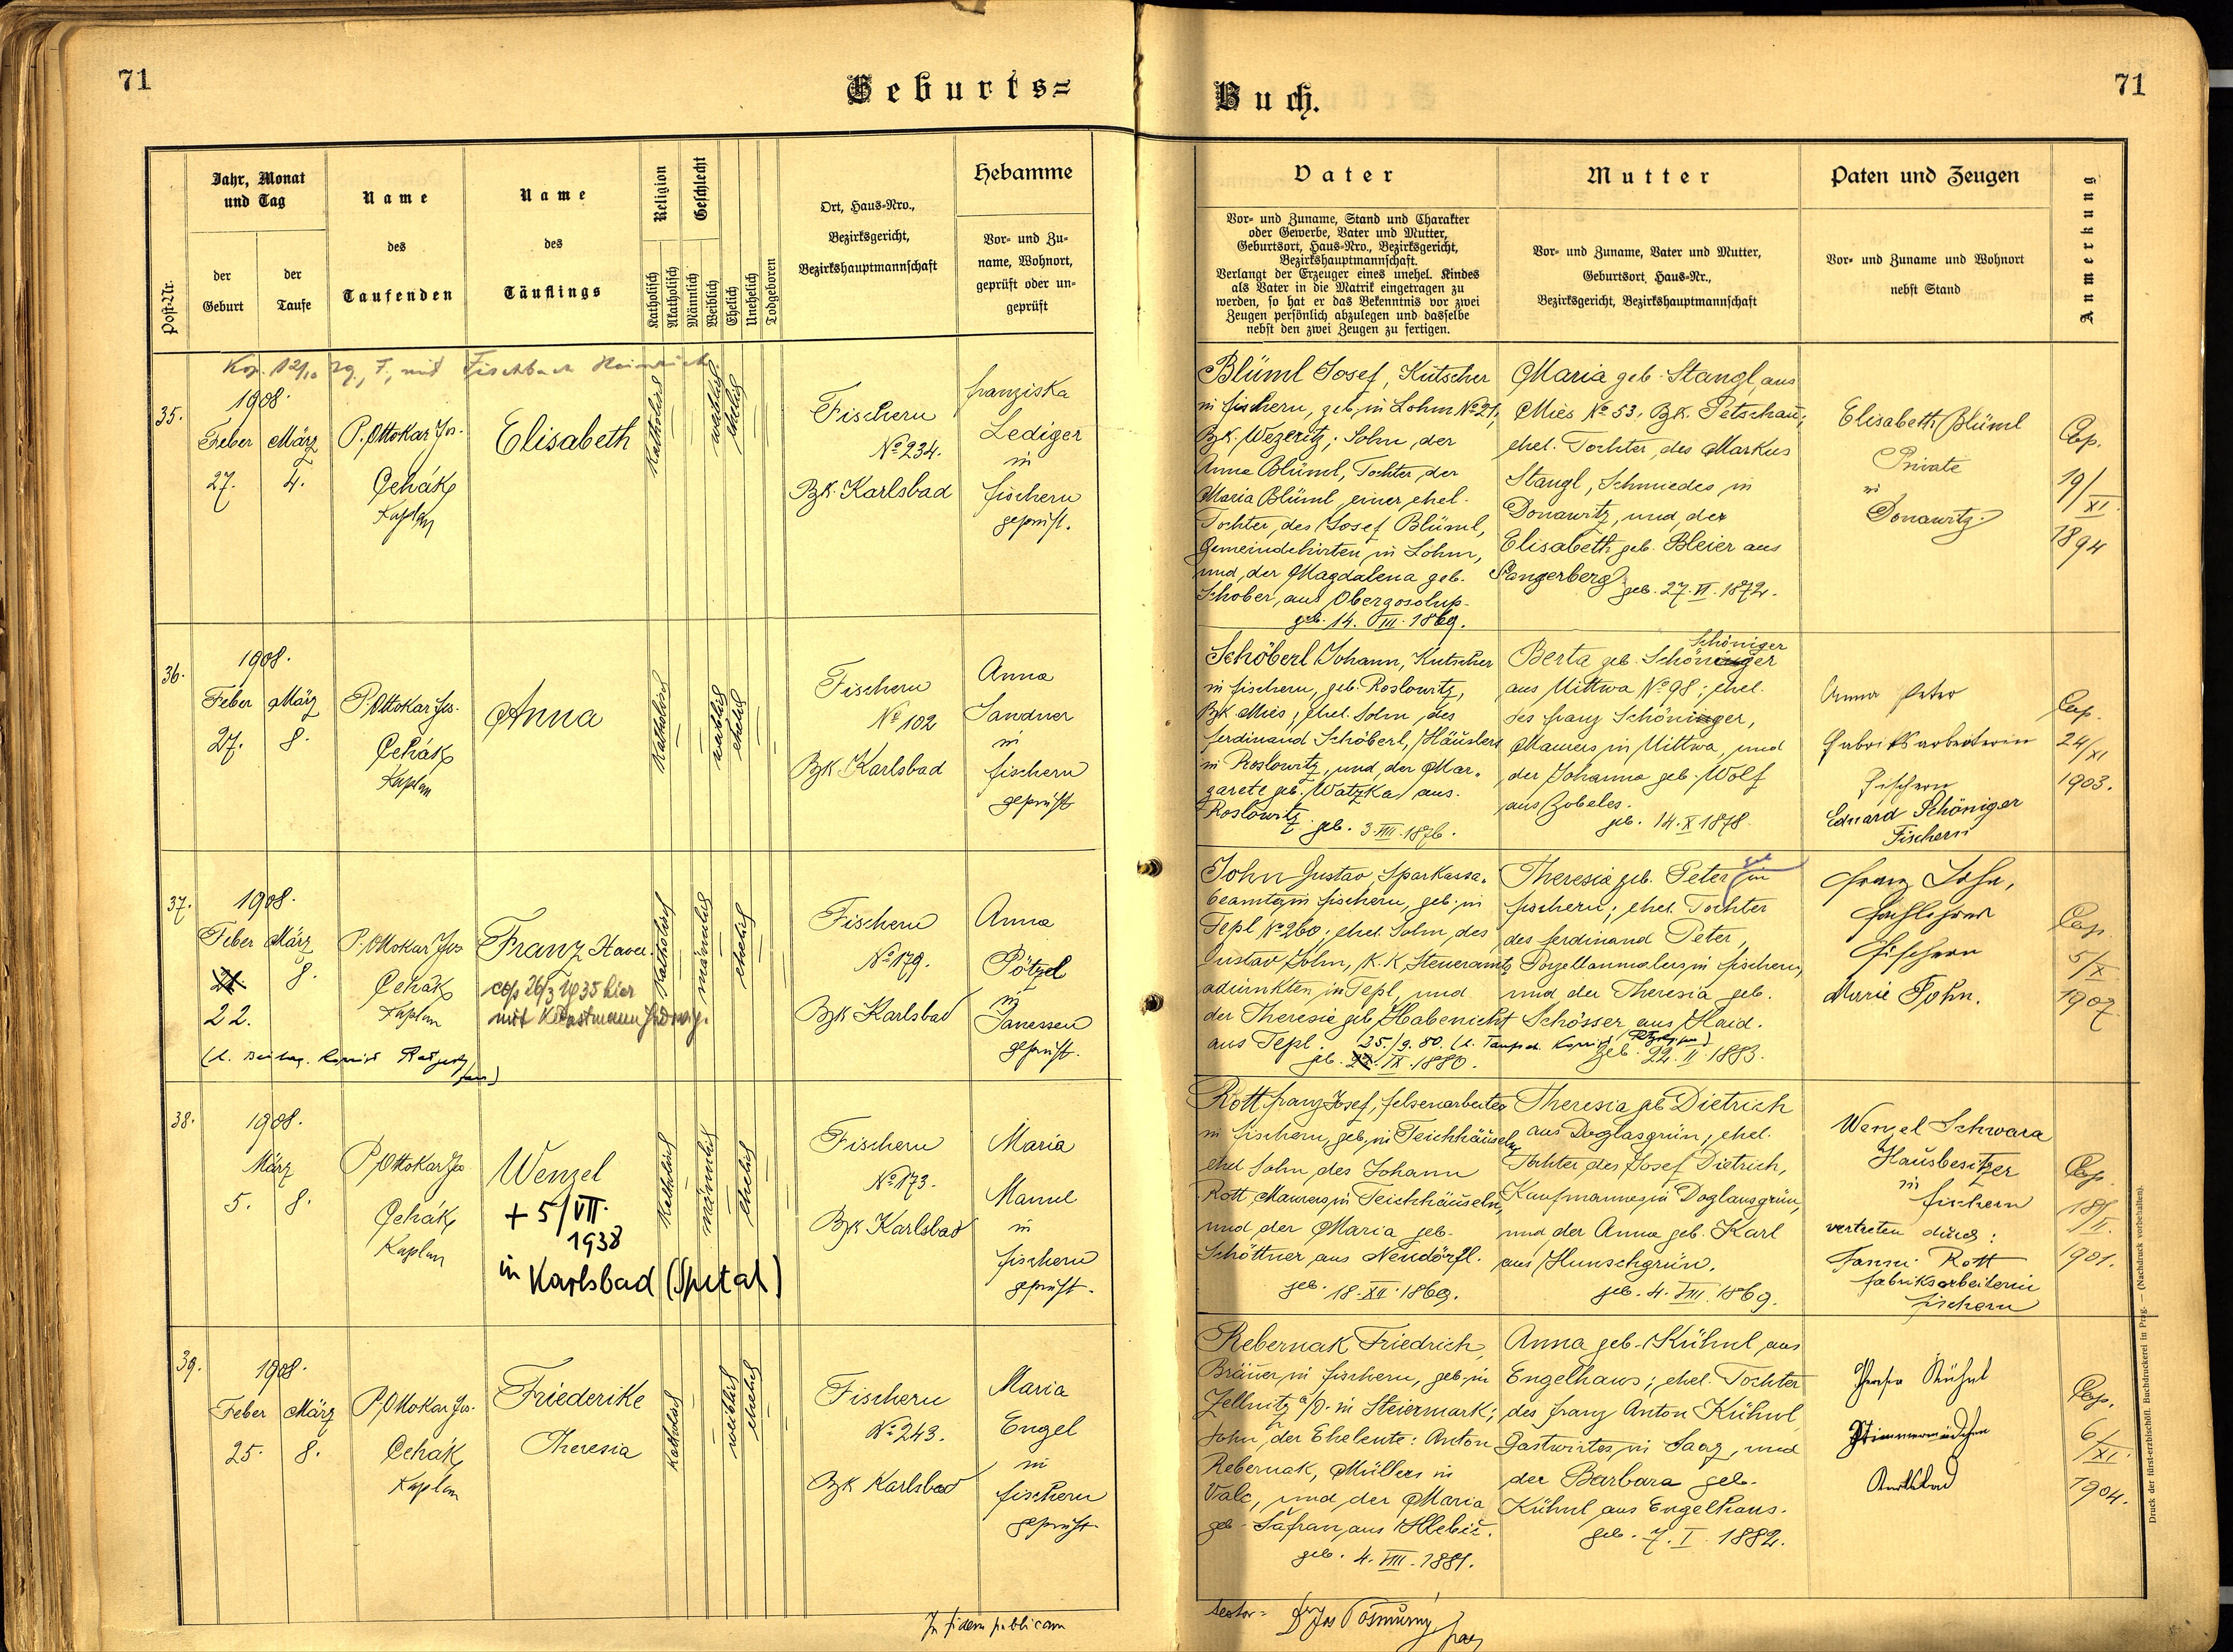 71
Geburts=
Jahr, Monat
und Tag
Name
des
Taufenden
Name
des
Täuflings
Religion
Geschlecht
Ort, Haus=Nro.,
Bezirksgericht,
Bezirkshauptmannschaft
Hebamme
Post=Nr.
der
Geburt
der
Taufe
Katholisch
Akatholisch
Männlich
Weiblich
Ehelich
Unehelich
Todgeboren
Vor= und Zu=
name, Wohnort,
geprüft oder un=
geprüft
Kop. 12/10 29, F, mit Fischbach Heinrich
35.
1908.
Feber März
27. 4.
P. Ottokar Jos.
Čehák
Kaplan
Elisabeth
katholisch
weiblich
ehelich
Fischern
No 234.
Bzk. Karlsbad
Franziska
Lediger
in
Fischern
geprüft.
36.
1908.
Feber März
27. 8.
P. Ottokar Jos.
Čehák
Kaplan
Anna
katholisch
weiblich
ehelich
Fischern
No 102
Bzk Karlsbad
Anna
Sandner
in
Fischern
geprüft
37.
1908.
Feber März
8.
22.
P. Ottokar Jos
Čehák
Kaplan
Franz Xaver
cop 26/3 1935 hier
mit
katholisch
männlich
ehelich
Fischern
No 179.
Bzk Karlsbad
Anna
Pötzel
in
Janessen
geprüft.
38.
1908.
März
5. 8.
P. Ottokar Jos
Čehák
Kaplan
Wenzel
+ 5/VII.
1938
in Karlsbad (Spital)
katholisch
männlich
ehelich
Fischern
No 173.
Bzk Karlsbad
Maria
Mannl
in
Fischern
geprüft.
39.
1908.
Feber März
25. 8.
P. Ottokar Jos.
Čehák
Kaplan
Friederike
Theresia
katholisch
weiblich
ehelich
Fischern
No 243.
Bzk Karlsbad
Maria
Engel
in
Fischern
geprüft
In fidem publicam
Buch.
71
Vater
Vor= und Zuname, Stand und Charakter
oder Gewerbe, Vater und Mutter,
Geburtsort, Haus=Nro., Bezirksgericht,
Bezirkshauptmannschaft.
Verlangt der Erzeuger eines unehel. Kindes
als Vater in die Matrik eingetragen zu
werden, so hat er das Bekenntnis vor zwei
Zeugen persönlich abzulegen und dasselbe
nebst den zwei Zeugen zu fertigen.
Mutter
Vor= und Zuname, Vater und Mutter,
Geburtsort, Haus=Nr.,
Bezirksgericht, Bezirkshauptmannschaft
Paten und Zeugen
Vor= und Zuname und Wohnort
nebst Stand
Anmerkung
Blüml Josef, Kutscher
in Fischern, geb. in Lohm No 21,
Bzk. Wezeritz; Sohn der
Anna Blüml, Tochter der
Maria Blüml einer ehel.
Tochter des Josef Blüml,
Gemeindehirten in Lohm,
und der Magdalena geb.
Schober, aus Obergosolup.
geb. 14. VIII. 1869.
Maria geb. Stangl, aus
Mies No 53, Bzk. Petschau;
ehel. Tochter des Markus
Stangl, Schmiedes in
Donawitz, und der
Elisabeth geb. Bleier aus
Sangerberg.
geb. 27. VI. 1872.
Elisabeth Blüml
Private
in
Donawitz
Cop.
19/XI
1894
Schöberl Johann, Kutscher
in Fischern, geb. Roslowitz,
Bzk Mies, ehel. Sohn des
Ferdinand Schöberl, Häuslers
in Roslowitz, und der Mar=
garete geb. Watzka aus
Roslowitz geb. 3. VIII. 1876.
Schöniger
Berta geb. Schöninger
aus Mittwa No 98; ehel.
des Franz Schöninger,
Maurers in Mittwa, und
der Johanna geb. Wolf
aus Zobeles.
geb. 14. X 1878.
Anna Peter
Fabriksarbeiterin
Fischern
Eduard Schöniger
Fischern
Cop.
24/XI
1903.
John Gustav, Sparkassa=
beamter in Fischern, geb. in
Tepl No 260; ehel. Sohn des
Gustav John, K.K. Steueramts
adjunkten in Tepl, und
der Theresie geb. Habenicht
aus Tepl.
geb. IX. 1880.
Theresia geb. Peter in
Fischern; ehel. Tochter
des Ferdinand Peter,
Porzellanmalers in Fischern,
und der Theresia geb.
Schösser aus Haid.
geb. 22. II 1883.
Franz John,
Fachlehrer
Fischern
Marie John.
Cop.
5/X
1907
Rott Franz Josef, Felsenarbeiter
in Fischern, geb. in Teichhäuseln,
ehel Sohn des Johann
Rott, Maurers in Teichhäuseln,
und der Maria geb.
Schöttner aus Neudörfl.
geb. 18. XII. 1869.
Theresia geb Dietrich
aus Doglasgrün, ehel.
Tochter des Josef Dietrich,
Kaufmannes in Doglasgrün,
und der Anna geb. Karl
aus Hunschgrün.
geb. 4. VIII. 1869.
Wenzel Schwara
Hausbesitzer
in
Fischern
vertreten durch:
Fanni Rott
Fabriksarbeiterin
Fischern
Cop.
18/II.
1901.
Rebernak Friedrich,
Bräuer in Fischern, geb. in
Zellnitz a/D. in Steiermark;
Sohn der Eheleute: Anton
Rebernak, Müllers in
Valc, und der Maria
geb. Šafran, aus Hlebič.
geb. 4. VIII. 1881.
Anna geb. Kühnl aus
Engelhaus; ehel. Tochter
des Franz Anton Kühnl
Gastwirtes in Saaz, und
der Barbara geb.
Kühnl aus Engelhaus.
geb. 7. I. 1882.
Kühnl
Karlsbad
Cop.
6/XI.
1904.
Druck der fürst-erzbischöfl. Buchdruckerei in Prag. — (Nachdruck vorbehalten).